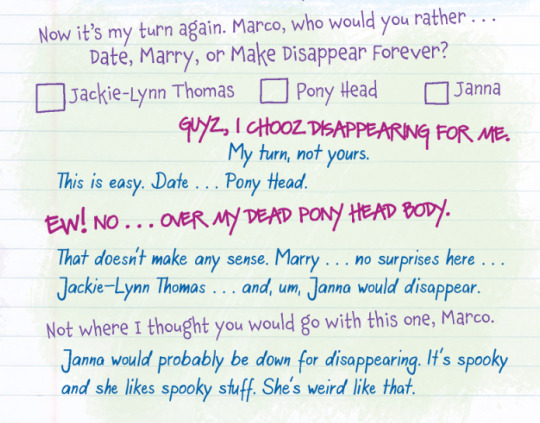 Now it's my turn again. Marco, who would you rather . . .
Date, Marry, or Make Disappear Forever?
Jackie-Lynn Thomas Pony Head Janna
GUYZ, I CHOOZ DISAPPEARING FOR ME.
My turn, not yours.
This is easy. Date . . . Pony Head.
EW! NO . . . OVER MY DEAD PONY HEAD BODY.
That doesn't make any sense. Marry . . . no surprises here . . .
Jackie-Lynn Thomas . . . and, um, Janna would disappear.
Not where I thought you would go with this one, Marco.
Janna would probably be down for disappearing. It's spooky
and she likes spooky stuff. She's weird like that.